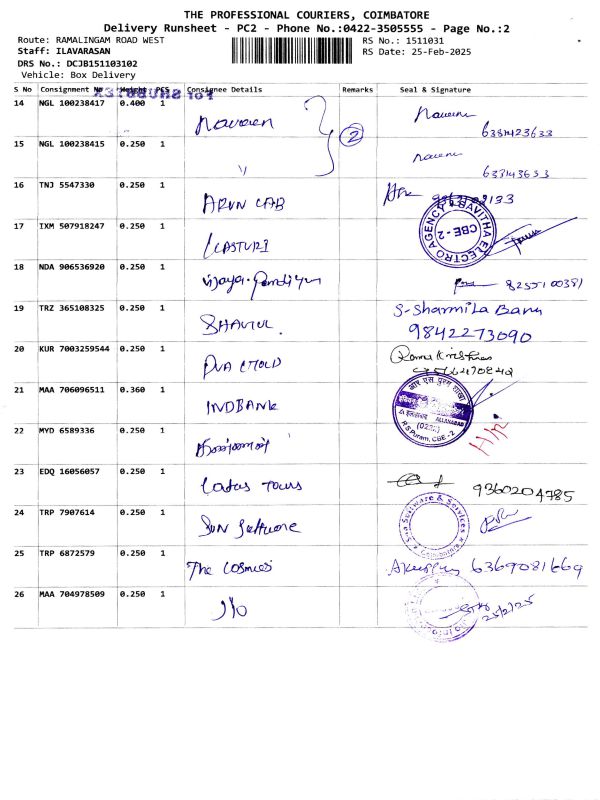 THE PROFESSIONAL COURIERS, COIMBATORE
Delivery Runsheet - PC2 - Phone No.:0422-3505555 - Page No.:2
Route: RAMALINGAM ROAD WEST
RS No.: 1511031
Staff: ILAVARASAN
RS Date: 25-Feb-2025
DRS No.: DCJB151103102
Vehicle: Box Delivery
S No Consignment No Weight PCS Consignee Details Remarks Seal & Signature
14 NGL 100238417 0.400 1 Naveen 2 Naveen
15 NGL 100238415 0.250 1 〃 Naveen
16 TNJ 5547330 0.250 1 ARUN LAB
17 IXM 507918247 0.250 1 KASTURI SAVITHA ELECTRO AGENCY CBE - 2
18 NDA 906536920 0.250 1 Vijaya Pandiyan
19 TRZ 365108325 0.250 1 S-Sharmila Banu
9842273090
20 KUR 7003259544 0.250 1 Rama Krishnan
21 MAA 706096511 0.360 1 INDBANK ALLAHABAD R S Puram, CBE - 2
22 MYD 6589336 0.250 1
23 EDQ 16056057 0.250 1 Lotus Tours 9360204785
24 TRP 7907614 0.250 1 Sun Software Sun Software & Services Coimbatore
25 TRP 6872579 0.250 1 The Cosmics 6369081669
26 MAA 704978509 0.250 1 25/2/25